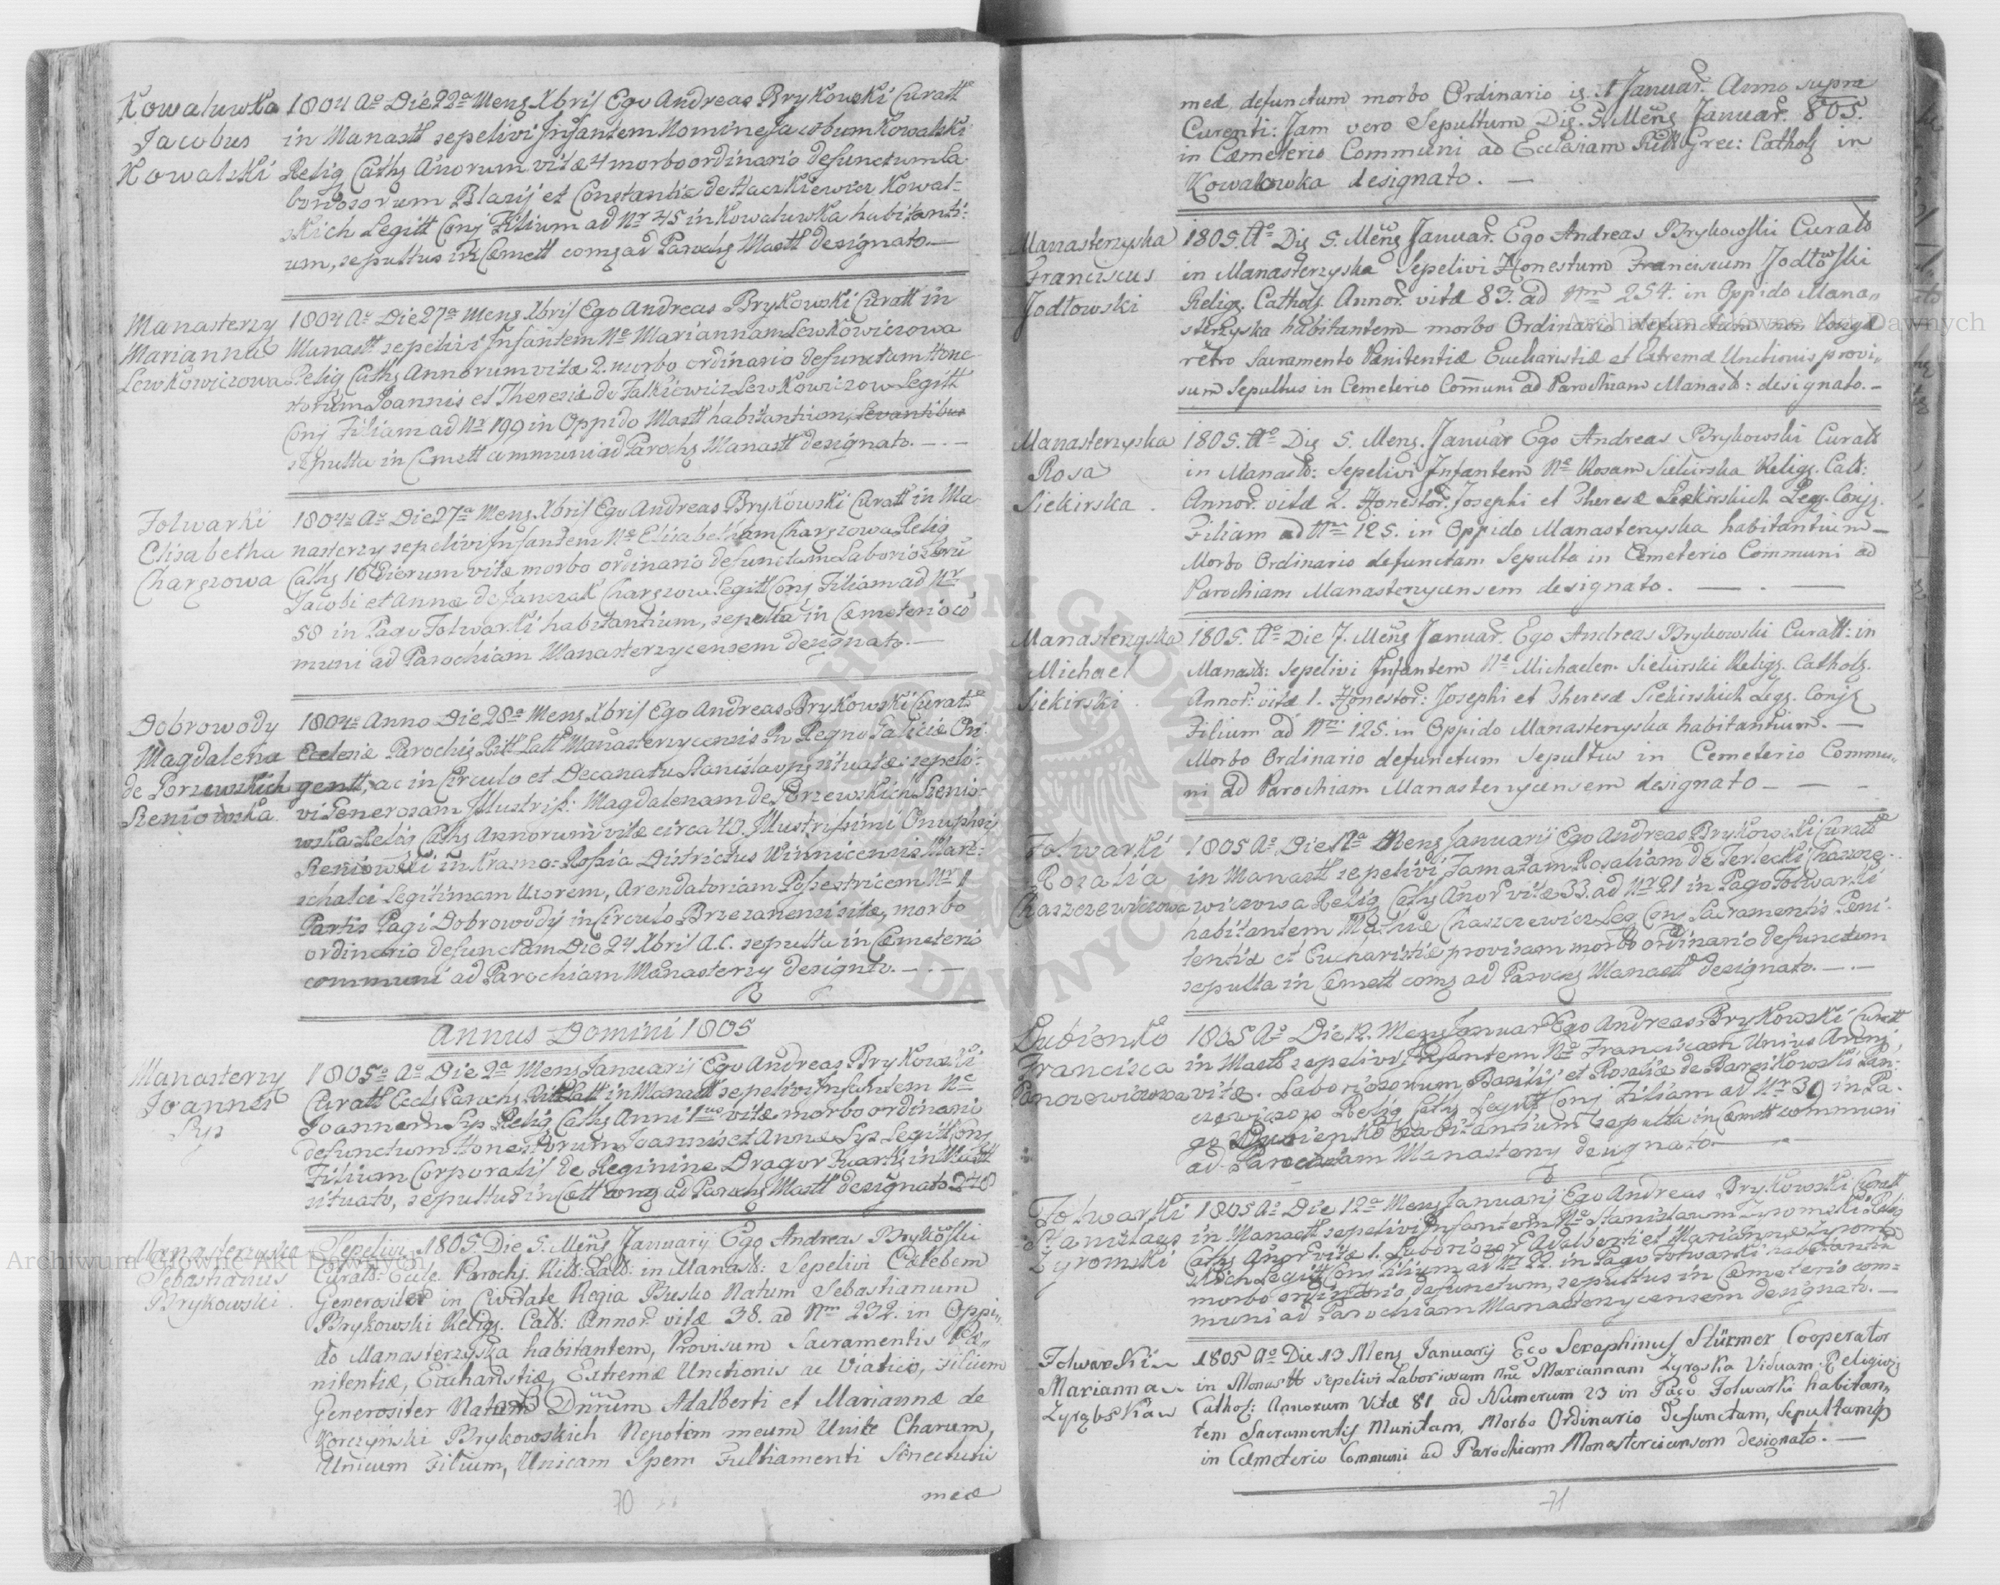 Kowaluwka
Jacobus
Kowalski
1804 Ao Die 22a Mens Xbris Ego Andreas Brykowski Curatt
in Manastt sepelivi Infantem Nomine Jacobum Kowalski
Relig Caths Anorum vitæ 4 morbo ordinario defunctum La-
boriosorum Blasij et Constantiæ de Haczkiewicz Kowal-
skich Legitt Conj Filium ad Nr 45 in Kowaluwka habitanti-
um, sepultus in Cæmett coms ad Parochs Mastt designato
Manasterzy
Marianna
Lewkowiczowa
1804 Ao Die 27a Mens Xbris Ego Andreas Brykowski Curatt in
Manastt sepelivi Infantem Ne Mariannam Lewkowiczowa
Relig Caths Annorum vitæ 2. morbo ordinario defunctam Hone-
storum Joannis et Theresiæ de Falkiewicz Lewkowiczow Legitt
Conj Filiam ad Nr 199 in Oppido Mastt habitantium,
sepulta in Cæmett communi ad Parochs Manastt designato.
Folwarki
Elisabetha
Chargzowa
1804 Ao Die 27a Mens Xbris Ego Andreas Brykowski Curatt in Ma-
nasterzy sepelivi Infantem Ne Elisabetham Chargzowa Relig
Caths 10 Dierum vitæ morbo ordinario defunctam Laborios
Jacobi et Annæ de Janczak Chargzow Legitt Conj Filiam ad Nr
58 in Pago Folwarki habitantium, sepulta in Cæmeterio co
muni ad Parochiam Manasterzycensem designato.
Dobrowody
Magdalena
de Porzewskich
Reniowska
1804 Anno Die 28a Mens Xbris Ego Andreas Brykowski Curat
Eccleniæ Parochis Ritt Latt Manasterzycensis in Regno Galicie Ori-
gentt, ac in Circulo et Decanatu Stanislavjs situatæ; sepeli-
vi Generosam Illustriss: Magdalenam de Porzewskich Renio-
wska Relig Caths Annorum vitæ circa 40. Illustrissimi Onuphrij
Reniowski in Krasno=Rossia Districtus Winnicensis Mare-
schalci Legitimam Uxorem, Arendatoriam Possestricem Nr 1
Partis Pagi Dobrowody in Circulo Brzezanensi sitæ, morbo
ordinario defunctam Die 24 Xbris A.C. sepulta in Cæmeterio
communi ad Parochiam Manasterzy designto.
Annus Domini 1805
Manasterzy
Joannes
Lys
1805 Ao Die 2a Mens Januarii Ego Andreas Brykowski
Curatt Eccls Parochs Ritt Latt in Manastt sepelivi Infantem Ne
Joannem Lys Relig Caths Anni 1 vitæ morbo ordinario
defunctum Honestorum Joannis et Annæ Lys Legitt Conj
Filium Corporalis de Reginine Dragor Fuarti in Mastt
situato, sepultus in Cæett coms ad Parochs Mastt designato 248
Manasterzyska
Sebastianus
Brykowski
Sepelivi 1805. Die 5. Mens Januarij Ego Andreas Brykowski
Curatt: Eccle. Parochj. Ritt: Latt: in Manast: Sepelivi Cælebem
Generositer in Civitate Regia Busko Natum Sebastianum
Brykowski Religs. Catt: Annor. vitæ 38. ad Nrm 232. in Oppi=
do Manasterzyska habitantem, Provisum Sacramentis Pæ=
nitentiæ, Eucharistiæ, Extremæ Unctionis ac Viatico, Filium
Generositer Natum Dnrum Adalberti et Mariannæ de
Korczynski Brykowskich Nepotem meum Unice Charum,
Unicum Filium, Unicam Spem Fulciamenti Senectutis
meæ
70
meæ defunctum morbo Ordinario Januar. Anno supra
Curenti: Jam vero Sepultum Die. 5. Mens Januar. 805.
in Cæmeterio Communi ad Ecclesiam Ritt Græc: Catholj in
Kowalowka designato.
Manasterzyska
Franciscus
Jodłowski
1805. Ao Die 5. Mens Januar. Ego Andreas Brykowski Curatt
in Manasterzyska Sepelivi Honestum Franciscum Jodłowski
Religs. Catholj. Annor. vitæ 83. ad Nrm 254. in Oppido Mana=
sterzyska habitantem morbo Ordinario defunctum non longe
retro Sacramento Pænitentiæ Eucharistiæ et Extremæ Unctionis provi=
sum Sepultus in Cemeterio Comuni ad Parochiam Manast: designato.
Manasterzyska
Rosa
Siekirska.
1805. Ao Die 5. Mens. Januar Ego Andreas Brykowski Curatt
in Manast: Sepelivi Infantem Ne Rosam Siekirska Religs. Catt:
Annor. vitæ 2. Honestor. Josephi et Theresæ Siekirskich Legs. Conjs.
Filiam ad Nrm 125. in Oppido Manasterzyska habitantium
Morbo Ordinario defunctam Sepulta in Cemeterio Communi ad
Parochiam Manasterzycensem designato.
Manasterzyska
Michael
Siekirski.
1805. Ao Die 7. Mens Januar. Ego Andreas Brykowski Curatt: in
Manast: Sepelivi Infantem Ne Michaelem Siekirski Religs. Catholj.
Annor: vitæ 1. Honestor: Josephi et Theresæ Siekirskich Legs. Conjs
Filium ad Nrm 125. in Oppido Manasterzyska habitantium.
Morbo Ordinario defunctum Sepultus in Cemeterio Commu=
ni ad Parochiam Manasterzycensem designato
Folwarki
Rozalia
Chaszczewiczowa
1805 Ao Die 12a Mens Januarij Ego Andreas Brykowski Curatt
in Manastt sepelivi Famatam Rosaliam de Terlecki Chaszcze-
wiczowa Relig Caths Anor vitæ 33. ad Nr 21 in Pago Folwarki
habitantem Mathiæ Chaszczewicz Leg Conj Sacramentis Peni-
tentiæ et Eucharistiæ provisam morbo ordinario defunctam
sepulta in Cæmett coms ad Parochs Manastt designato.
Dubienko
Francisca
Panczewiczowa
1805 Ao Die 12. Mens Januar Ego Andreas Brykowski Curatt
in Mastt sepelivi Infantem Ne Franciscam Unius Anni
vitæ. Laboriosorum Basilij et Rosaliæ de Bargikowski Pan-
czewiczow Relig Caths Legitt Conj Filiam ad Nr 30 in Pa-
go Dubienko habitantium sepulta in Cæmett communi
ad Parochiam Manasterzy designato
Folwarki
Stanislaus
Zyromski
1805 Ao Die 12a Mens Januarij Ego Andreas Brykowski Curatt
in Manastt sepelivi Infantem Ne Stanislaum Zyromski Relig
Caths Anor vitæ 1. Laborios Adalberti et Mariannæ Zyrom-
skich Legitt Conj Filium ad Nr 22. in Pago Folwarki habitantiu
morbo ordinario defunctum, sepultus in Cæmeterio com=
muni ad Parochiam Manasterzycensem designato.
Folwarki
Marianna
Zyrgbska
1805 Ao Die 13 Mens Januarij Ego Seraphinus Stürmer Cooperator
in Monastt sepelivi Laboriosam Mariannam Zyrgska Viduam Religiois
Cathos: Annorum Vitæ 81 ad Numerum 23 in Pago Folwarki habitan=
tem Sacramentis Munitam, Morbo Ordinario Defunctam, Sepultam
in Cæmeterio Communi ad Parochiam Monastercicensem designato.
71
Archiwum Główne Akt Dawnych
Archiwum Główne Akt Dawnych
ARCHIWUM GŁÓWNE AKT DAWNYCH